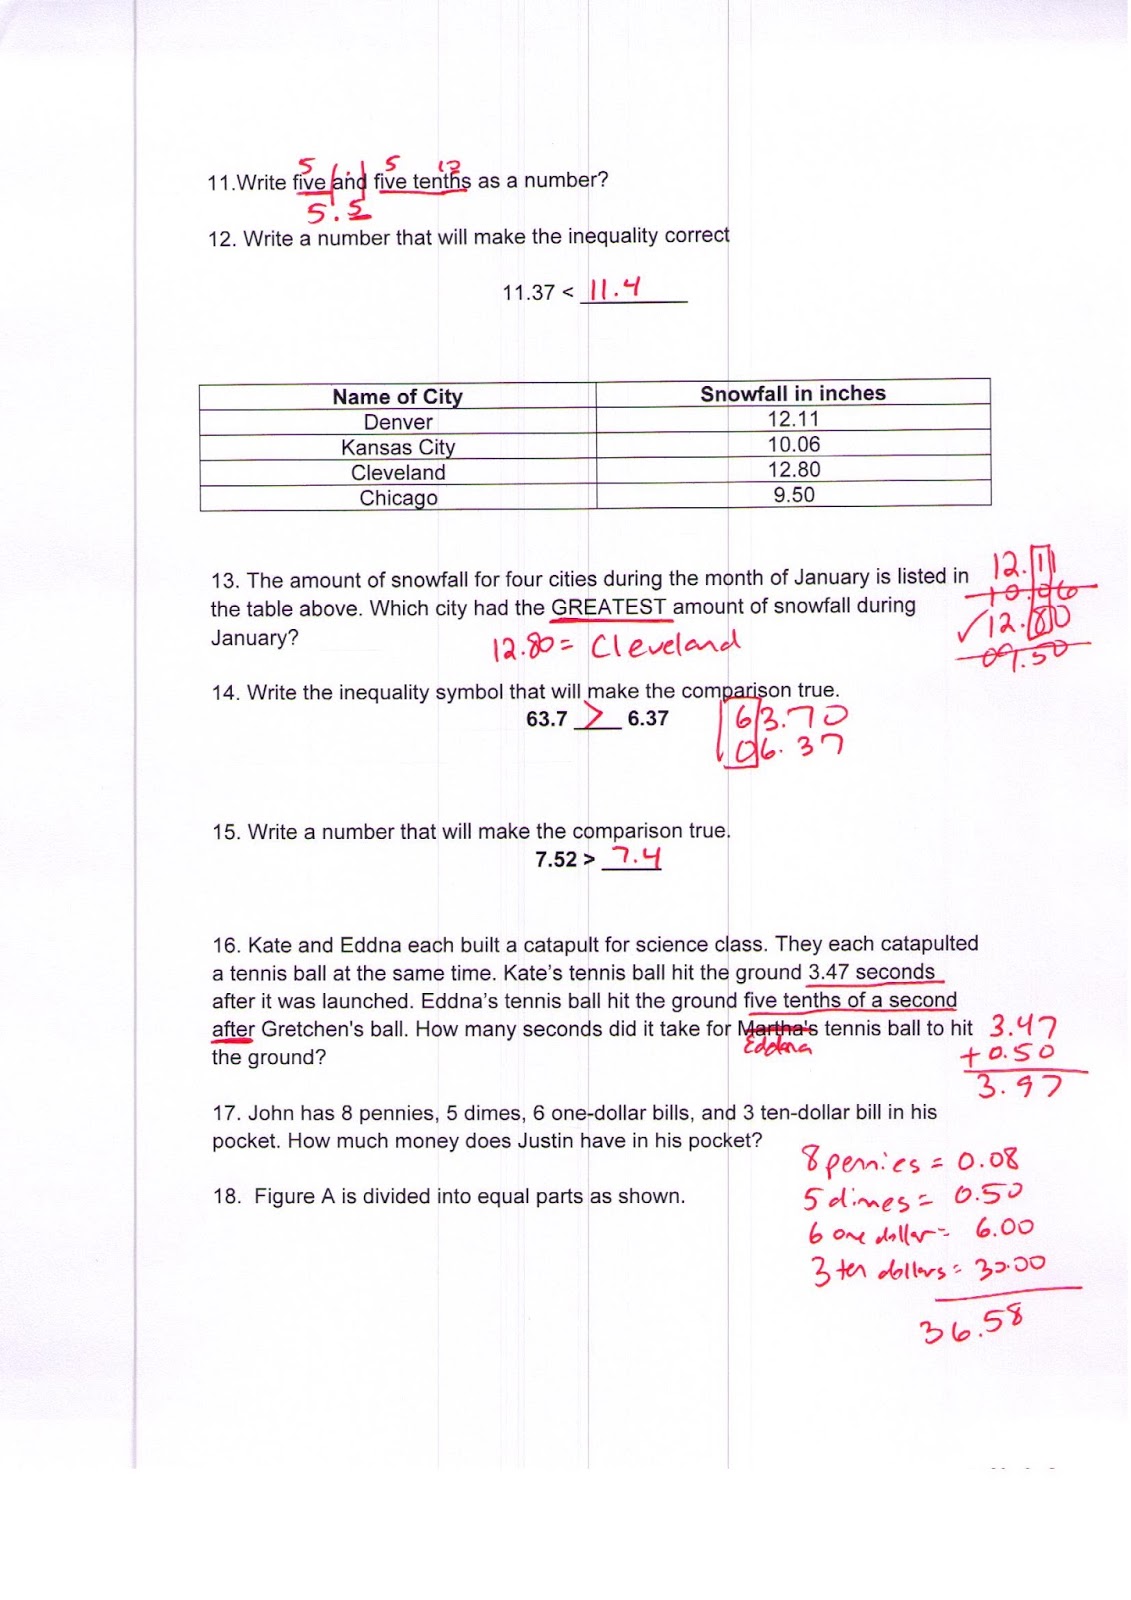 5 5 12
11.Write five and five tenths as a number?
5.5
12. Write a number that will make the inequality correct
11.37 < 11.4
Name of City Snowfall in inches
Denver 12.11
Kansas City 10.06
Cleveland 12.80
Chicago 9.50
12.11
13. The amount of snowfall for four cities during the month of January is listed in 10.06
the table above. Which city had the GREATEST amount of snowfall during 12.80
January? 12.80 = Cleveland 09.50
14. Write the inequality symbol that will make the comparison true.
63.7 > 6.37 63.70
06.37
15. Write a number that will make the comparison true.
7.52 > 7.4
16. Kate and Eddna each built a catapult for science class. They each catapulted
a tennis ball at the same time. Kate's tennis ball hit the ground 3.47 seconds
after it was launched. Eddna's tennis ball hit the ground five tenths of a second
after Gretchen's ball. How many seconds did it take for Martha's tennis ball to hit 3.47
Eddna + 0.50
the ground? 3.97
17. John has 8 pennies, 5 dimes, 6 one-dollar bills, and 3 ten-dollar bill in his
pocket. How much money does Justin have in his pocket?
8 pennies = 0.08
18. Figure A is divided into equal parts as shown. 5 dimes = 0.50
6 one dollar = 6.00
3 ten dollars = 30.00
36.58